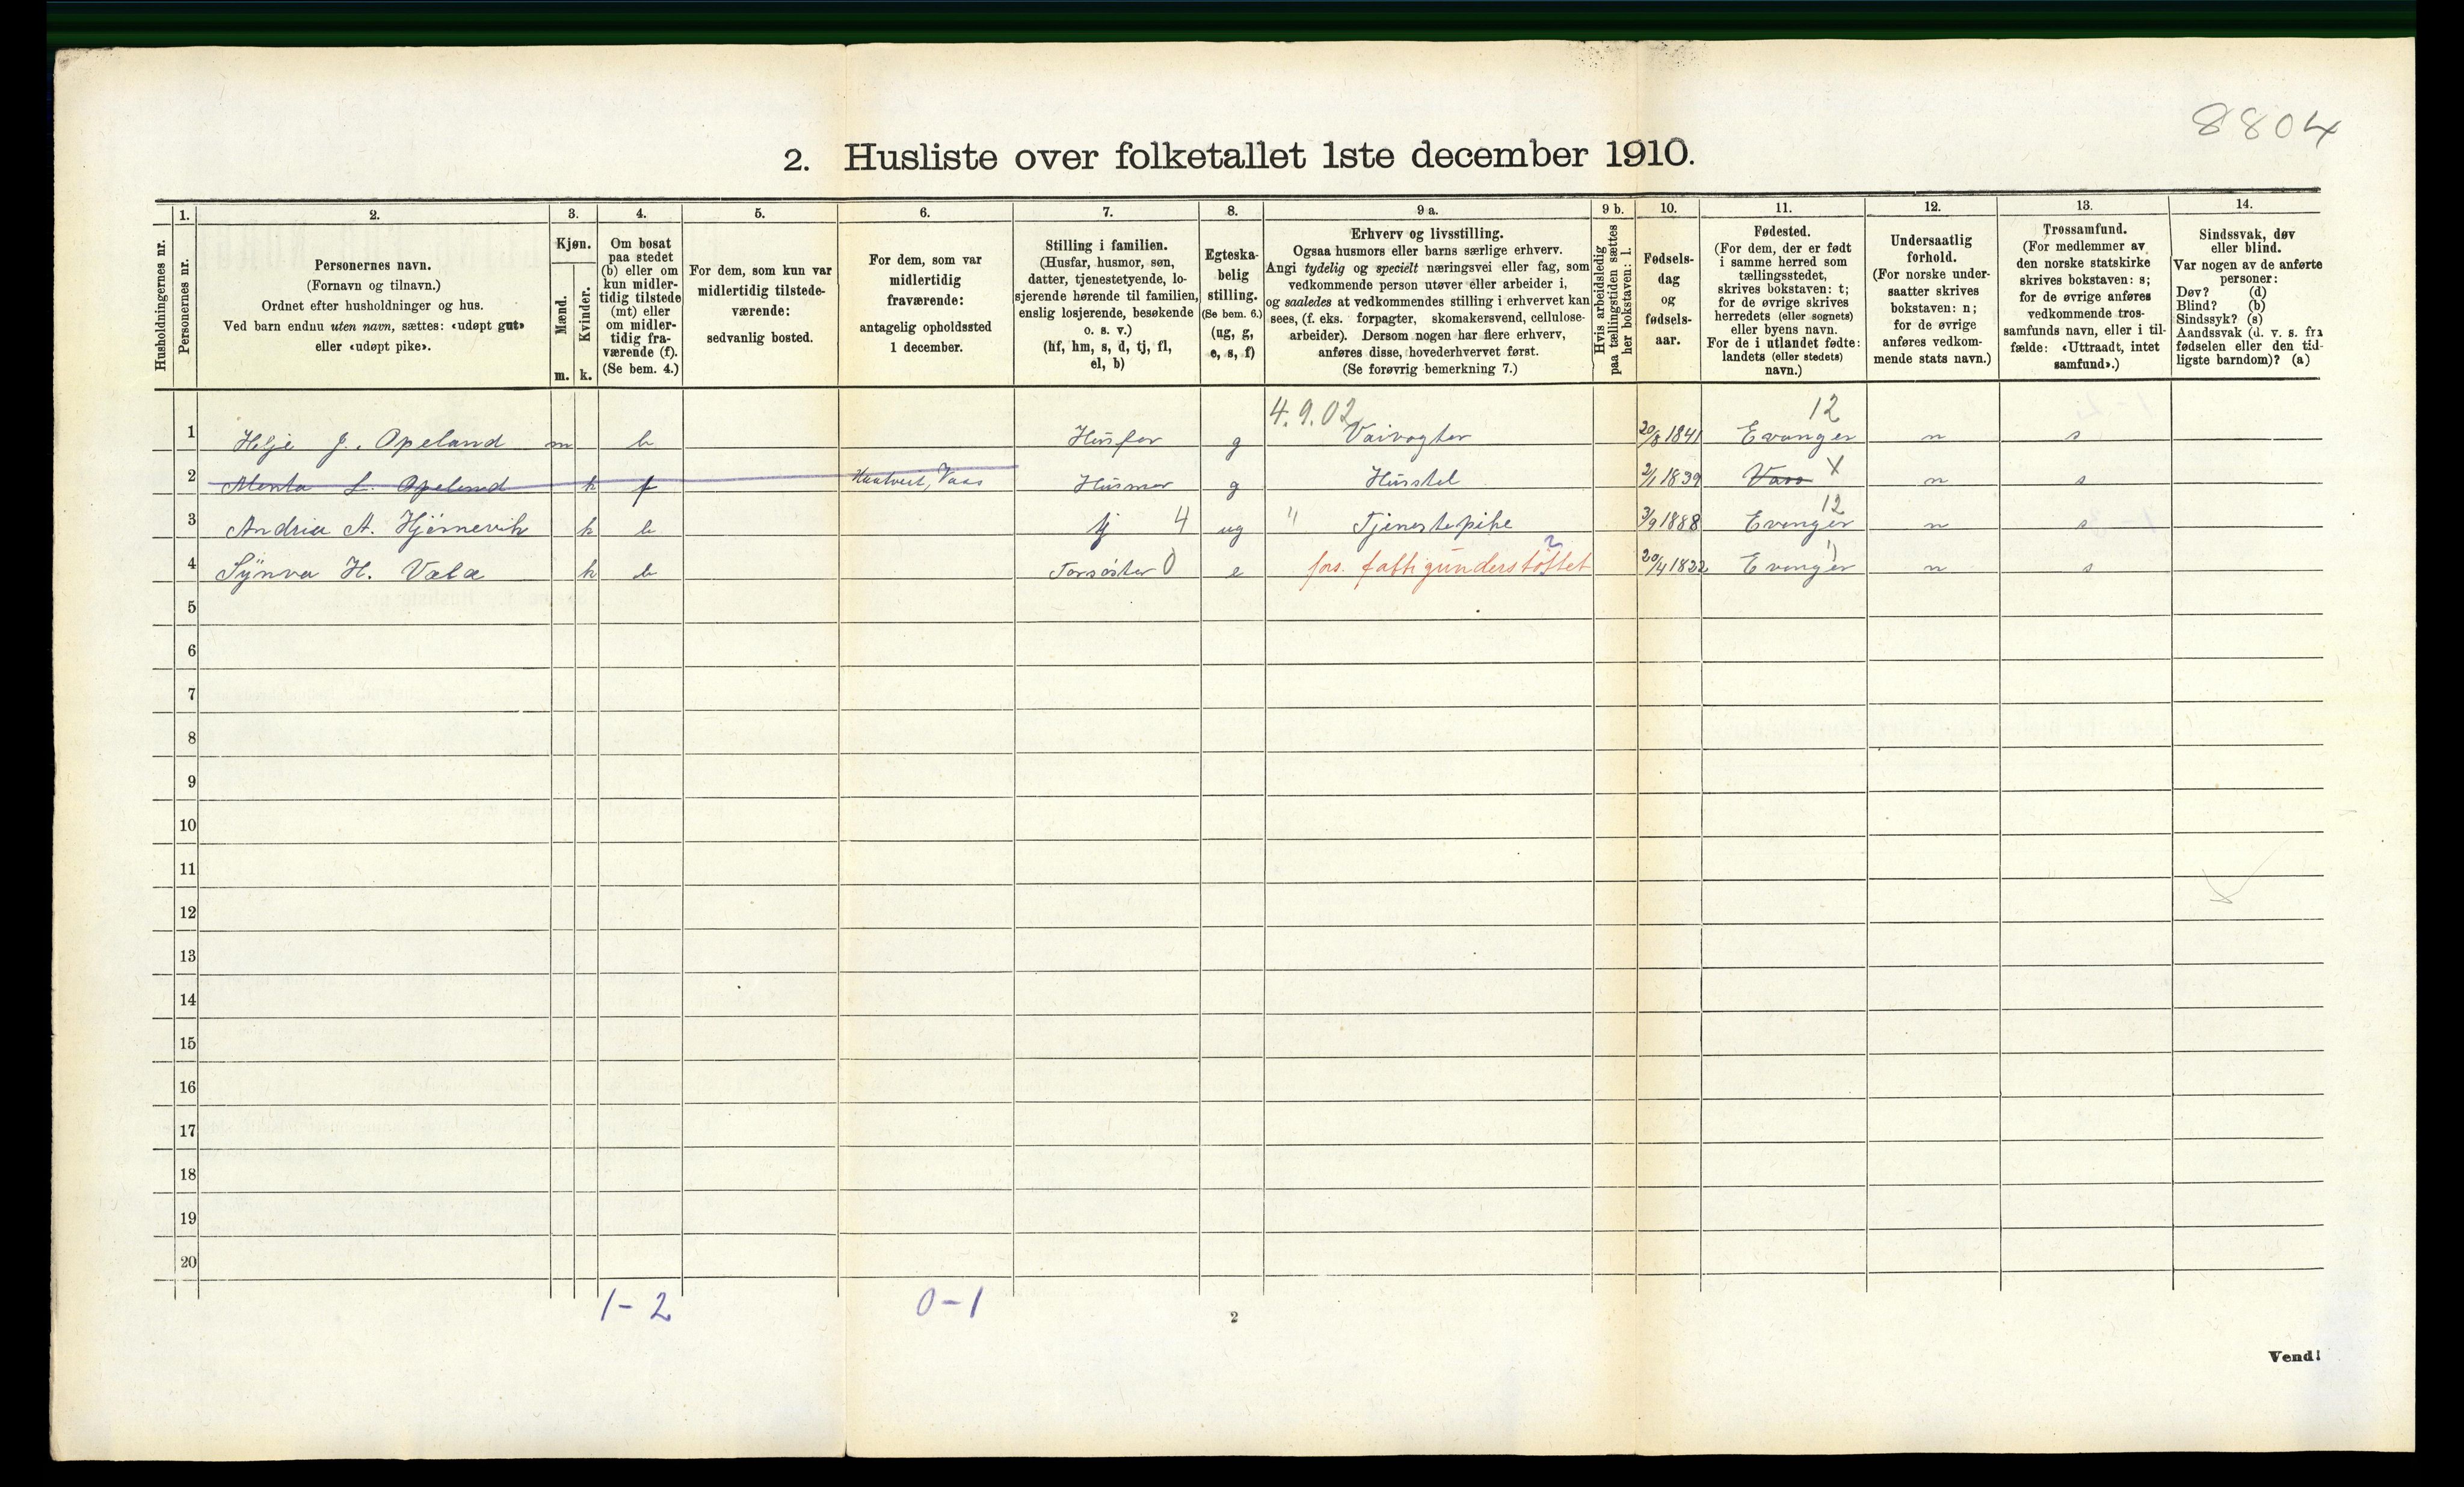 8804
2. Husliste over folketallet 1ste december 1910.
Husholdningernes nr.
1.
Personernes nr.
2.
Personernes navn.
(Fornavn og tilnavn.)
Ordnet efter husholdninger og hus.
Ved barn endnu uten navn, sættes: «udøpt gut»
eller «udøpt pike».
3.
Kjøn.
Mænd.
Kvinder.
m. k.
4.
Om bosat
paa stedet
(b) eller om
kun midler-
tidig tilstede
(mt) eller
om midler-
tidig fra-
værende (f).
(Se bem. 4.)
5.
For dem, som kun var
midlertidig tilstede-
værende:
sedvanlig bosted.
6.
For dem, som var
midlertidig
fraværende:
antagelig opholdssted
1 december.
7.
Stilling i familien.
(Husfar, husmor, søn,
datter, tjenestetyende, lo-
sjerende hørende til familien,
enslig losjerende, besøkende
o. s. v.)
(hf, hm, s, d, tj, fl,
el, b)
8.
Egteska-
belig
stilling.
(Se bem. 6.)
(ug, g,
e, s, f)
9 a.
Erhverv og livsstilling.
Ogsaa husmors eller barns særlige erhverv.
Angi tydelig og specielt næringsvei eller fag, som
vedkommende person utøver eller arbeider i,
og saaledes at vedkommendes stilling i erhvervet kan
sees, (f. eks. forpagter, skomakersvend, cellulose-
arbeider). Dersom nogen har flere erhverv,
anføres disse, hovederhvervet først.
(Se forøvrig bemerkning 7.)
9 b.
Hvis arbeidsledig
paa tællingstiden sættes
her bokstaven: l.
10.
Fødsels-
dag
og
fødsels-
aar.
11.
Fødested.
(For dem, der er født
i samme herred som
tællingsstedet,
skrives bokstaven: t;
for de øvrige skrives
herredets (eller sognets)
eller byens navn.
For de i utlandet fødte:
landets (eller stedets)
navn.)
12.
Undersaatlig
forhold.
(For norske under-
saatter skrives
bokstaven: n;
for de øvrige
anføres vedkom-
mende stats navn.)
13.
Trossamfund.
(For medlemmer av
den norske statskirke
skrives bokstaven: s;
for de øvrige anføres
vedkommende tros-
samfunds navn, eller i til-
fælde: «Uttraadt, intet
samfund».)
14.
Sindssvak, døv
eller blind.
Var nogen av de anførte
personer:
Døv? (d)
Blind? (b)
Sindssyk? (s)
Aandssvak (d. v. s. fra
fødselen eller den tid-
ligste barndom)? (a)
4.9.02 12
1 Helje J. Opeland m b Husfar g Vaivogter 20/8 1841 Evanger n s
2 L. Opeland k f Voss Husmor g Husstel 2/1 1839 Voss X n s
12
3 Andria A. Hjörnevik k b tj 4 ug " Tjenestepike 3/9 1888 Evanger n s
4 Synva H. Valæ k b 0 e fors. fattigunderstøttet 20/4 1822 Evanger n s
5
6
7
8
9
10
11
12
13
14
15
16
17
18
19
20
1-2 0-1
2
Vend!